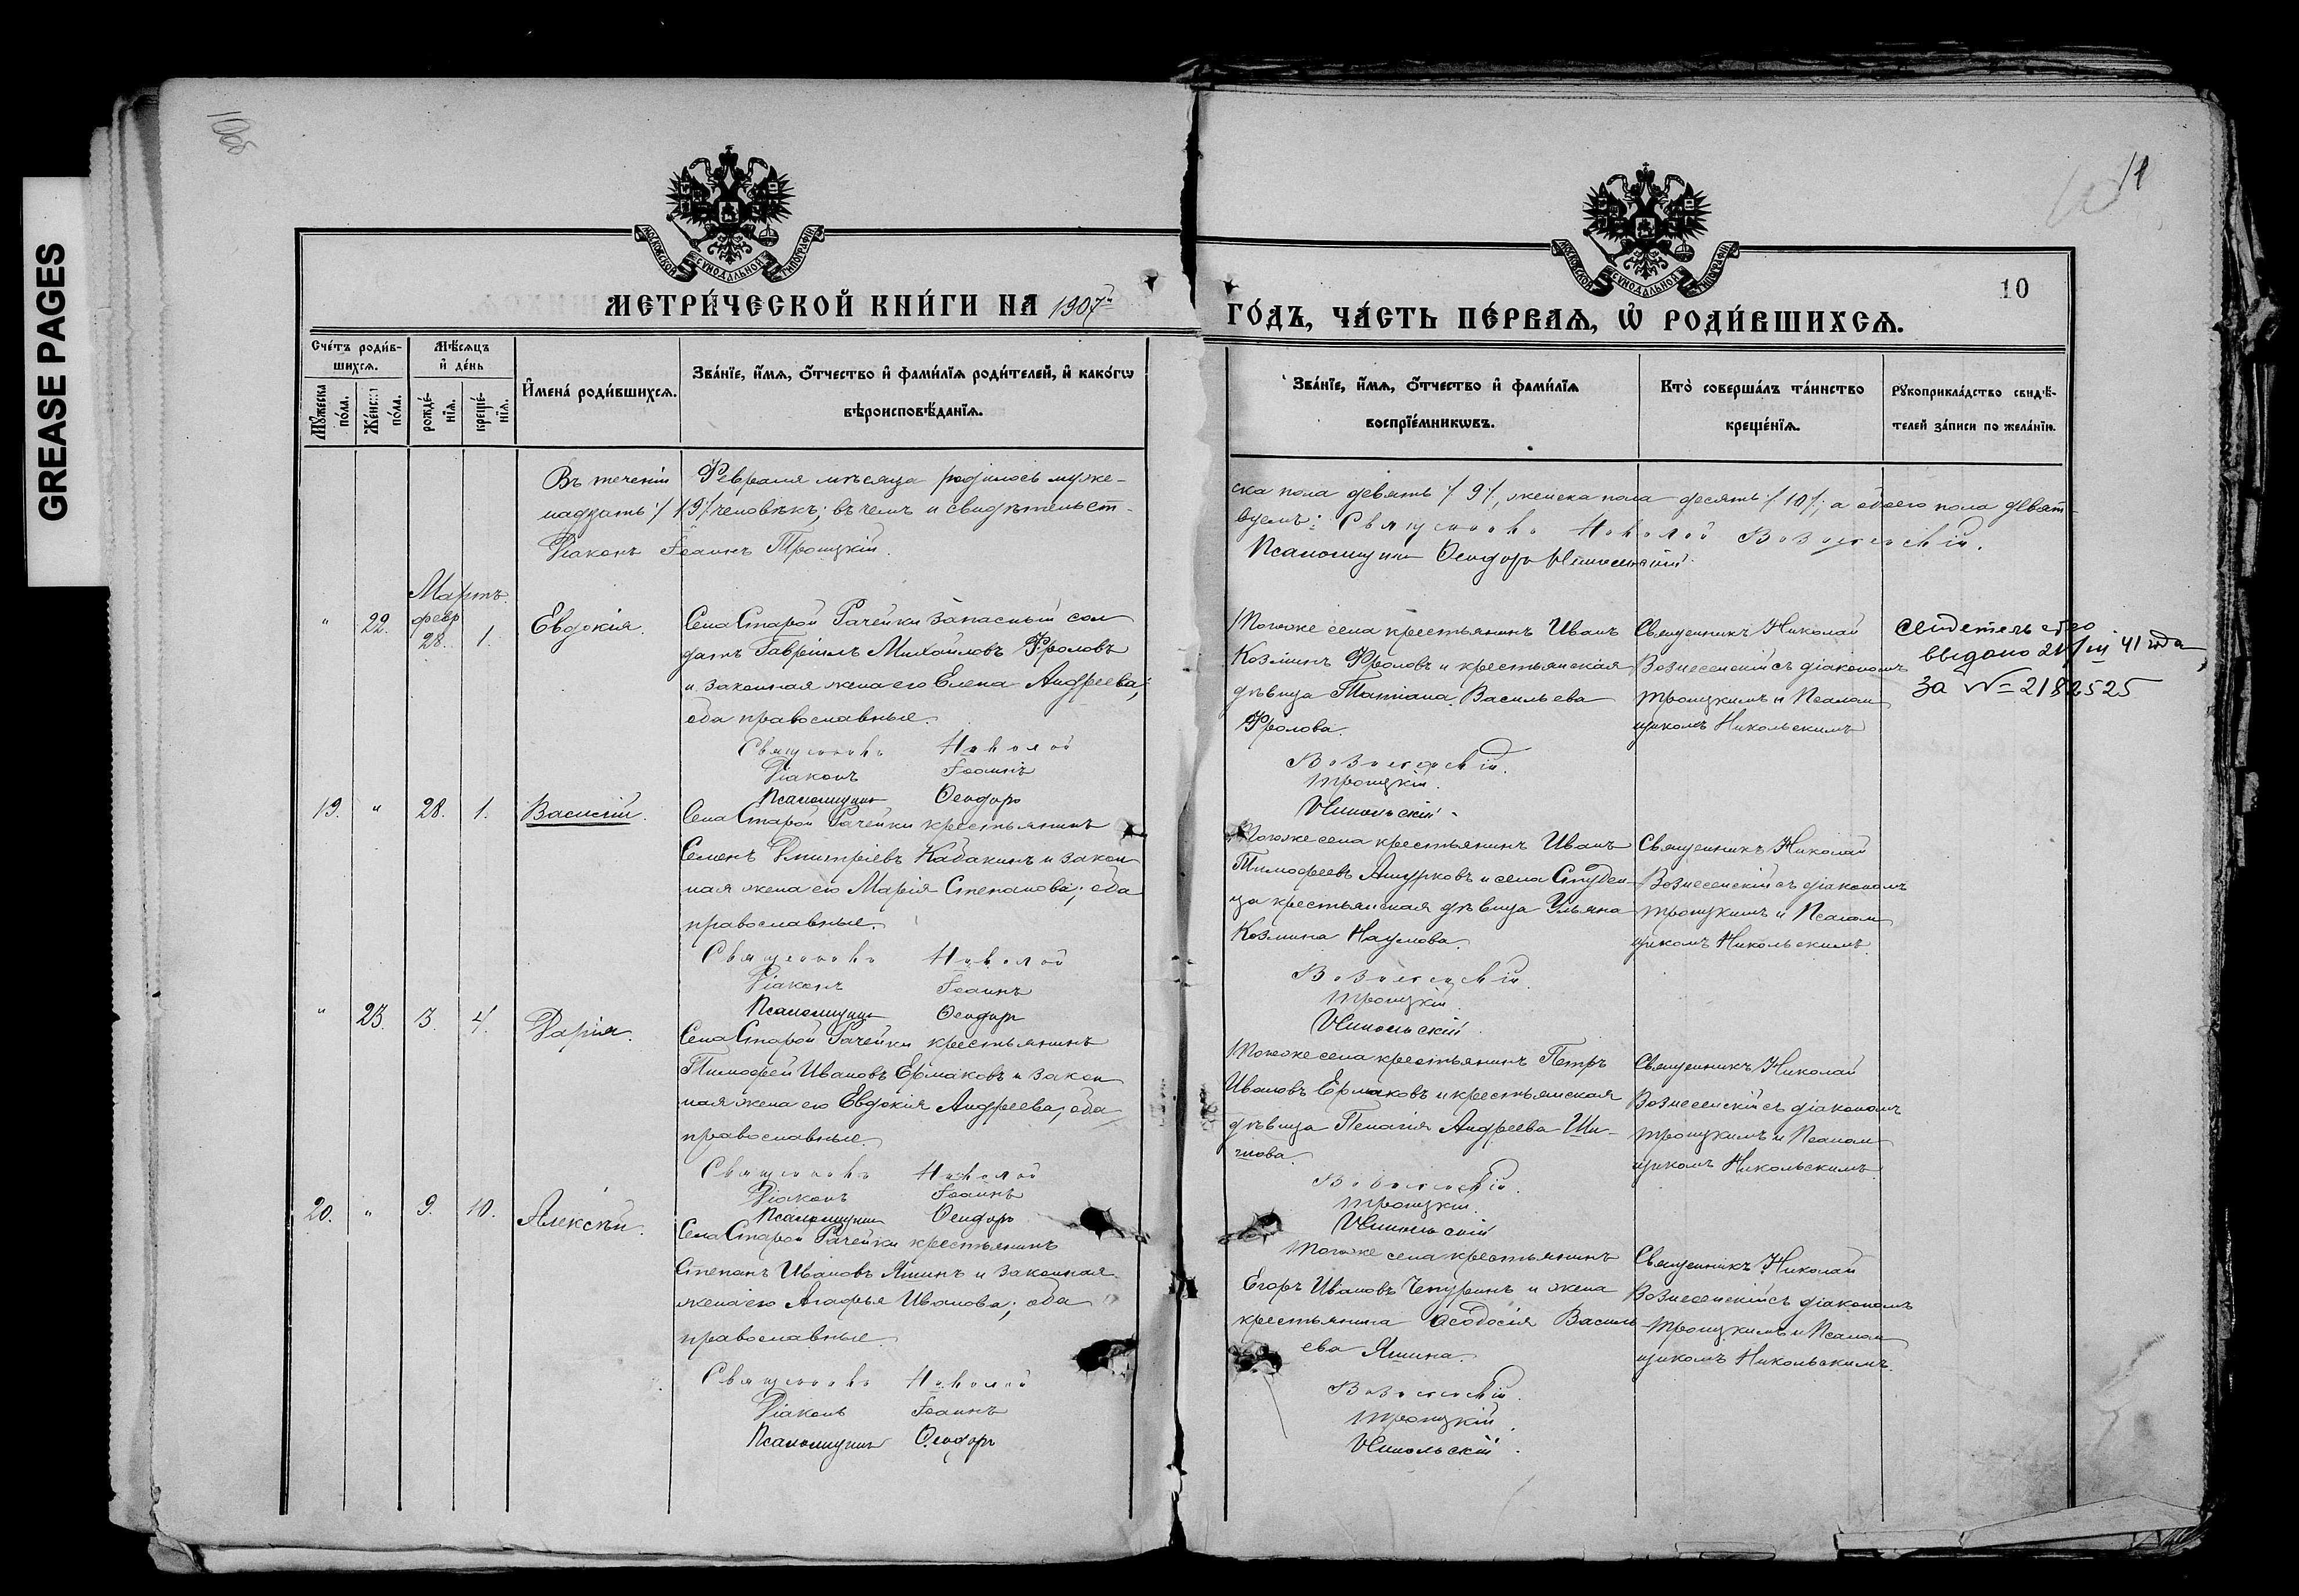 GREASE PAGES
11
10
МОСКОВСКОЙ СУНОДАЛЬНОЙ ТИПОГРАФІИ
МОСКОВСКОЙ СУНОДАЛЬНОЙ ТИПОГРАФІИ
МЕТРИ́ЧЕСКОЙ КНИ́ГИ НА 1907й
ГО́ДЪ, ЧА́СТЬ ПЕ́РВАѦ, Ѡ҆ РОДИ́ВШИХСѦ.
Сче́тъ роди́в-
шихсѧ.
Мꙋ́жеска по́ла.
Же́нска по́ла.
Мѣ́сѧцъ
и҆ де́нь
рожде́-нїѧ.
креще́-нїѧ.
И҆мена̀ роди́вшихсѧ.
Зва́нїе, и҆́мѧ, ѻ҆́тчество и҆ фами́лїѧ роди́телей, и҆ како́гѡ
вѣроисповѣ́данїѧ.
Зва́нїе, и҆́мѧ, ѻ҆́тчество и҆ фами́лїѧ
воспрїе́мникѡвъ.
Кто̀ соверша́лъ та́инство
креще́нїѧ.
Рꙋкоприкла́дство свидѣ́-
телей за́писи по жела́нїю.
Въ теченіи Февраля мѣсяца родилось муже-
ска пола девять /9/, женска пола десять /10/, а обоего пола девят-
надцать /19/ человѣкъ; въ чемъ и свидѣтельст-
вуемъ: Священникъ Николай Вознесенскій.
Діаконъ Іоаннъ Троицкій.
Псаломщикъ Ѳеодоръ Никольскій
Мартъ
" 22. февр 28. 1. Евдокія.
Села Старой Рачейки запасный сол
датъ Гавріилъ Михайловъ Фроловъ
и законная жена его Елена Андреева;
оба православные.
Священникъ Николай
Діаконъ Іоаннъ
Псаломщикъ Ѳеодоръ
Тогоже села крестьянинъ Иванъ
Козминъ Фроловъ и крестьянская
дѣвица Татіана Васильева
Фролова.
Вознесенскій.
Троицкій.
Никольскій
Священникъ Николай
Вознесенскій съ діакономъ
Троицкимъ и Псалом
щикомъ Никольскимъ
Свидетельство
выдано 21/III 41 года
за №=2182525
19. " 28. 1. Василій.
Села Старой Рачейки крестьянинъ
Семенъ Дмитріевъ Кабакинъ и закон
ная жена его Марія Степанова; оба
православные.
Священникъ Николай
Діаконъ Іоаннъ
Псаломщикъ Ѳеодоръ
Тогоже села крестьянинъ Иванъ
Тимофеевъ и села Студен-
ца крестьянская дѣвица Ульяна
Козмина Наумова.
Вознесенскій.
Троицкій.
Никольскій
Священникъ Николай
Вознесенскій съ діакономъ
Троицкимъ и Псалом
щикомъ Никольскимъ
" 23. 3. 4. Дарія.
Села Старой Рачейки крестьянинъ
Тимофей Ивановъ Ермаковъ и закон
ная жена его Евдокія Андреева; оба
православные.
Священникъ Николай
Діаконъ Іоаннъ
Псаломщикъ Ѳеодоръ
Тогоже села крестьянинъ Петръ
Ивановъ Ермаковъ и крестьянская
дѣвица Пелагія Андреева
Вознесенскій.
Троицкій.
Никольскій
Священникъ Николай
Вознесенскій съ діакономъ
Троицкимъ и Псалом
щикомъ Никольскимъ
20. " 9. 10. Алексѣй.
Села Старой Рачейки крестьянинъ
Степанъ Ивановъ Яшинъ и законная
жена его Агафья Иванова; оба
православные.
Священникъ Николай
Діаконъ Іоаннъ
Псаломщикъ Ѳеодоръ
Тогоже села крестьянинъ
Егоръ Ивановъ Чепуринъ и жена
крестьянина Ѳеодосія Василь
ева Яшина.
Вознесенскій.
Троицкій.
Никольскій.
Священникъ Николай
Вознесенскій съ діакономъ
Троицкимъ и Псалом
щикомъ Никольскимъ.